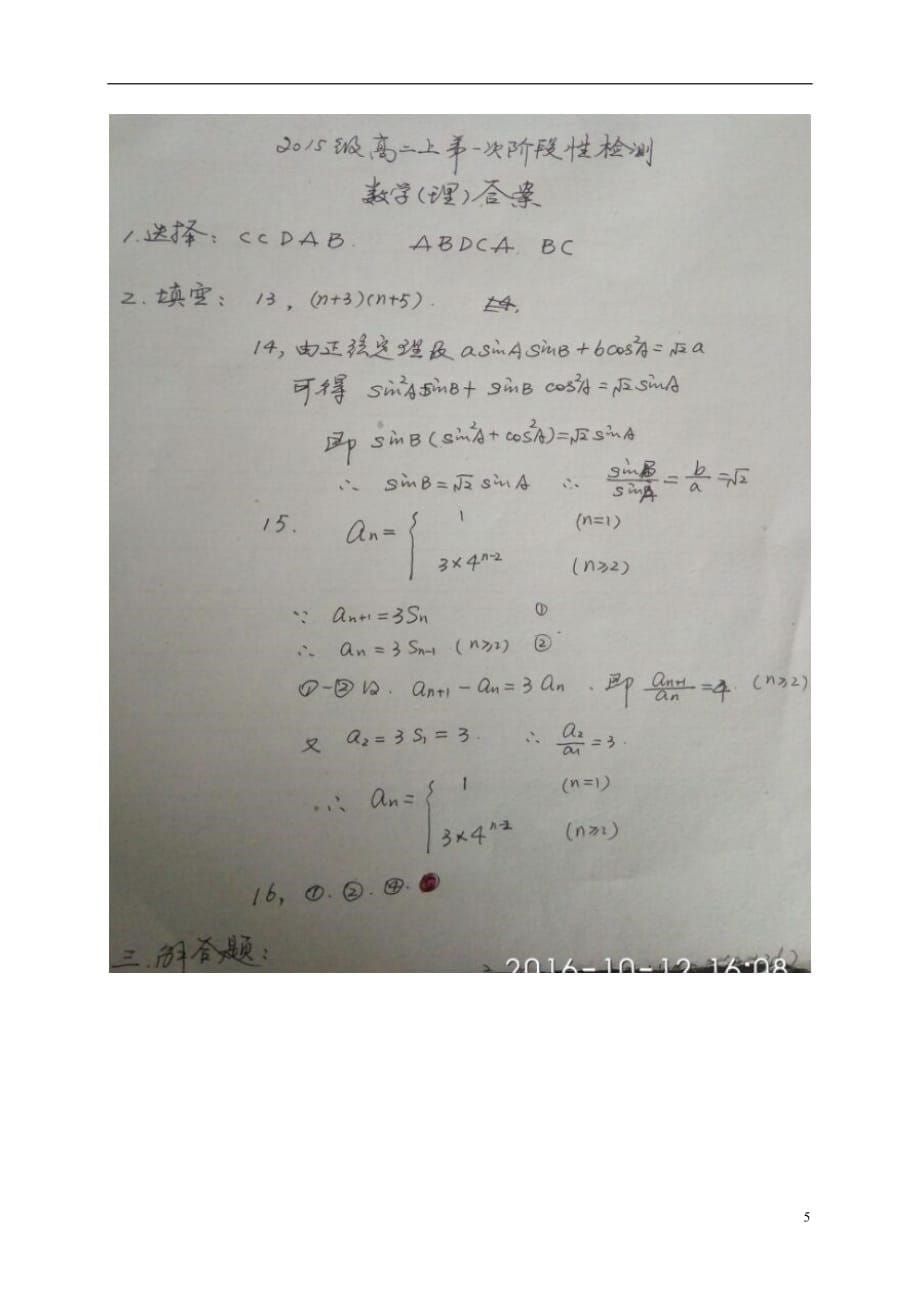 2015级高二上第一次阶段性检测
数学(理)答案
1.选择: CCDAB. ABDCA. BC
2.填空: 13, (n+3)(n+5).
14, 由正弦定理及 asinAsinB+bcos²A=√2a
可得 sin²AsinB+sinBcos²A=√2sinA
即 sinB(sin²A+cos²A)=√2sinA
∴ sinB=√2sinA ∴ sinB/sinA=b/a=√2
15. an={ 1 (n=1)
3×4^(n-2) (n≥2)
∵ an+1=3Sn ①
∴ an=3Sn-1 (n≥2) ②
①-②得. an+1-an=3an. 即 an+1/an=4. (n≥2)
又 a2=3S1=3. ∴ a2/a1=3.
∴ an={ 1 (n=1)
3×4^(n-2) (n≥2)
16, ①.②.④.
三.解答题:
2016-10-12 16:08
5